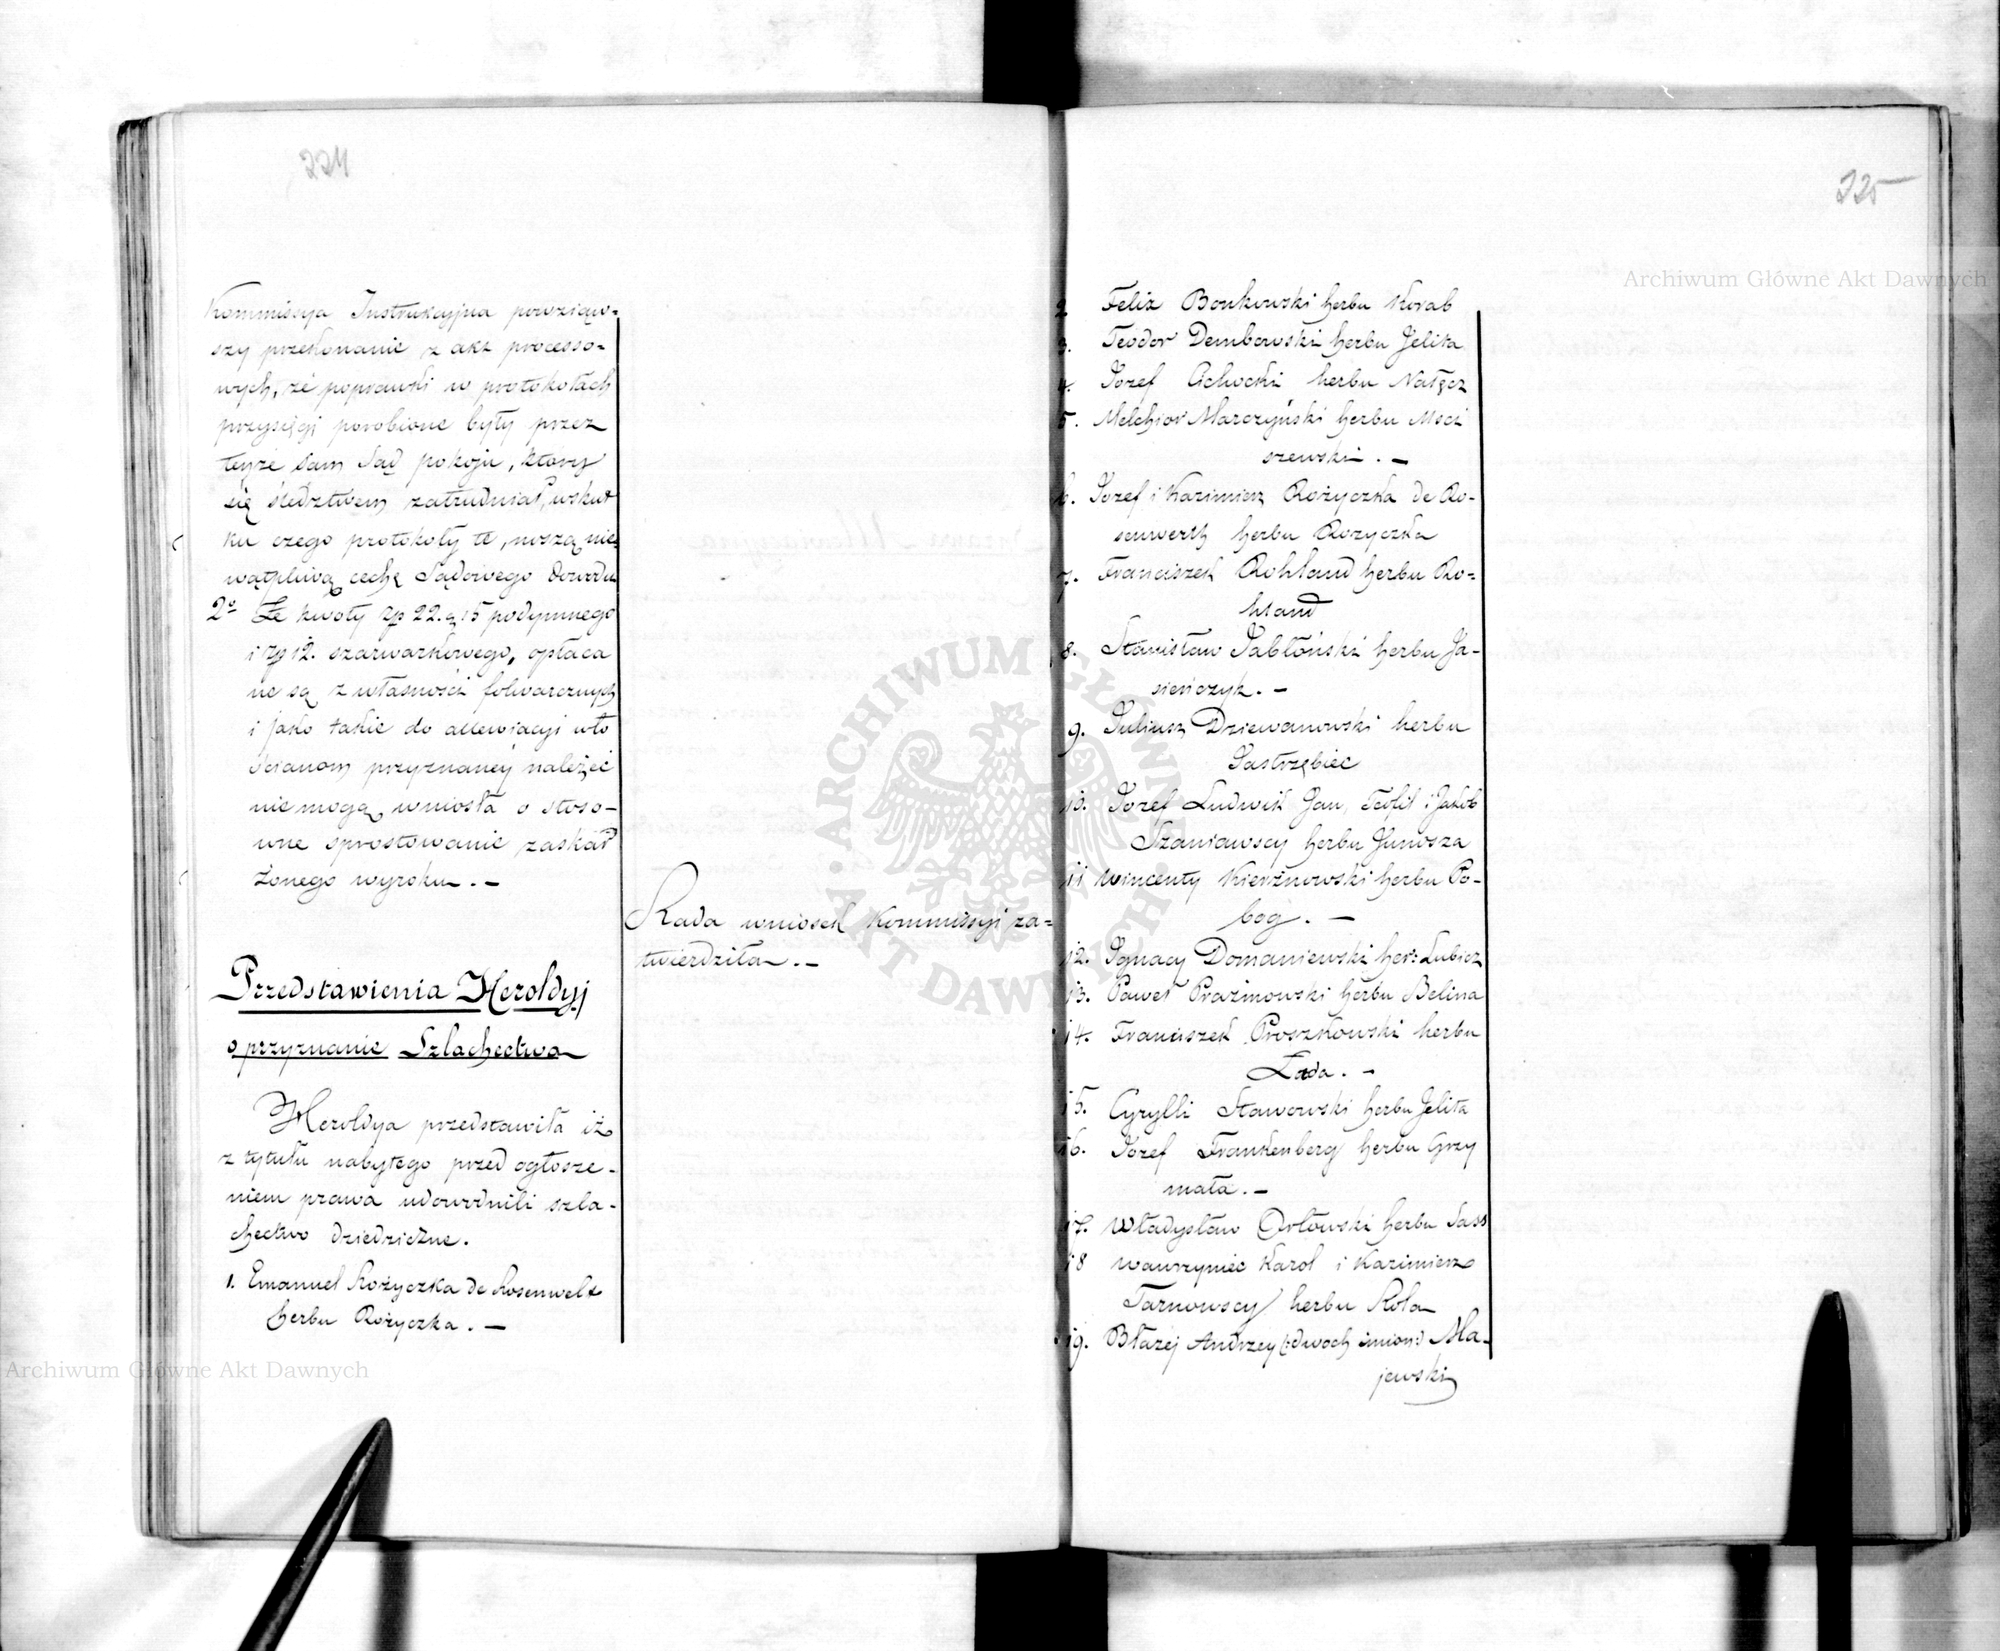 224
Kommissya Instrukcyjna powziąw-
szy przekonanie z akt processo-
wych, że poprawki w protokołach
przysięgi porobione były przez
tenże sam Sąd pokoju, który
się śledztwem zatrudniał, wskut
ku czego protokoły te, noszą nie-
wątpliwą cechę Sądowego dowodu
2o Że kwoty zp 22. g 15 podymnego
i zp 12. szarwarkowego, opłaca
ne są z własności folwarcznych
i jako takie do allewiacyi wło
ścianom przyznanéy należeć
nie mogą, wniosła o stoso-
wne sprostowanie zaskar
żonego wyroku. –
Rada wniosek Kommissyi za-
twierdziła. –
Przedstawienia Heroldyj
o przyznanie Szlachectwa
Heroldya przedstawiła iż
z tytułu nabytego przed ogłosze-
niem prawa udowodnili szla-
chectwo dziedziczne.
1. Emanuel Rożyczka de Rosenwelt
herbu Rożyczka. –
225
2 Felix Bonkowski herbu Korab
3. Teodor Dembowski herbu Jelita
4. Jozef Cichocki herbu Nałęcz
5. Melchior Marczyński herbu Msci
szewski. –
6. Jozef i Kazimierz Rożyczka de Ro-
senwerth herbu Rozyczka
7. Franciszek Rohland herbu Ro-
hland
8. Stanisław Jabłoński herbu Ja-
sieńczyk. –
9. Juliusz Dziewanowski herbu
Jastrzębiec
10. Jozef Ludwik Jan, Teofil i Jakob
Szaniawscy herbu Junosza
11 Wincenty Kierznowski herbu Po-
bog. –
12. Ignacy Domaniewski her: Lubicz
13. Paweł Prażmowski herbu Belina
14. Franciszek Proszkowski herbu
Łada. –
15. Cyrylli Stawowski herbu Jelita
16. Jozef Frankenberg herbu Grzy
mała. –
17. Władysław Orłowski herbu Sass
18 Wawrzyniec Karol i Kazimierz
Tarnowscy herbu Rola
19. Błażej Andrzey (:dwoch imion:) Ma-
jewski
Archiwum Główne Akt Dawnych
Archiwum Główne Akt Dawnych
ARCHIWUM GŁÓWNE AKT DAWNYCH